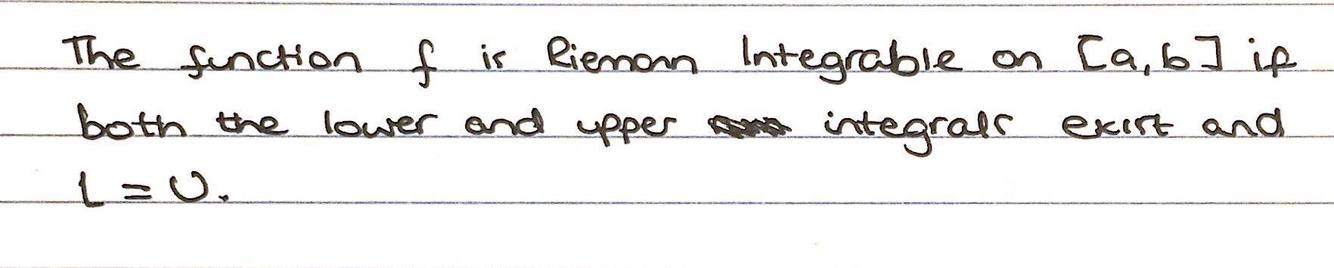 The function f is Riemann Integrable on [a,b] if
both the lower and upper integrals exist and
L = U.